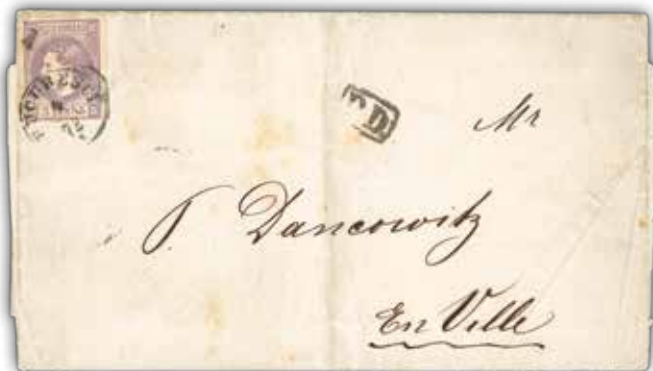 BUCURESCI
P.D.
Mr
P. Dancowitz
En Ville